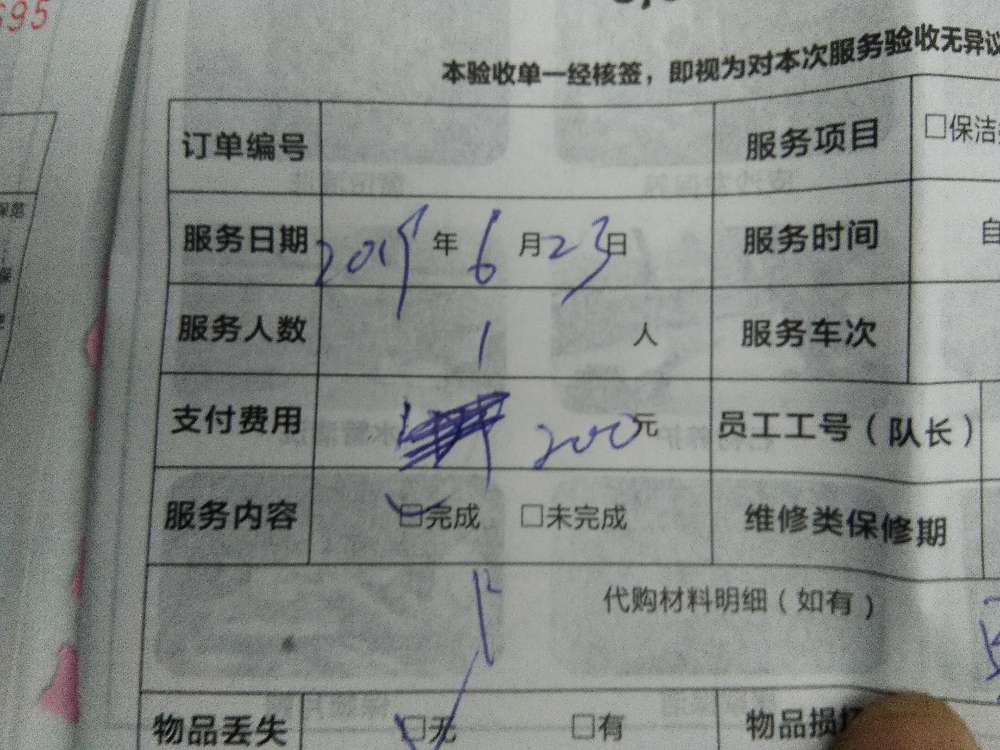 695
本验收单一经核签，即视为对本次服务验收无异议
订单编号 服务项目 □保洁
服务日期 2019年6月23日 服务时间 自
服务人数 1人 服务车次
支付费用 200元 员工工号（队长）
服务内容 □完成 □未完成 维修类保修期
代购材料明细（如有）
物品丢失 □无 □有 物品损